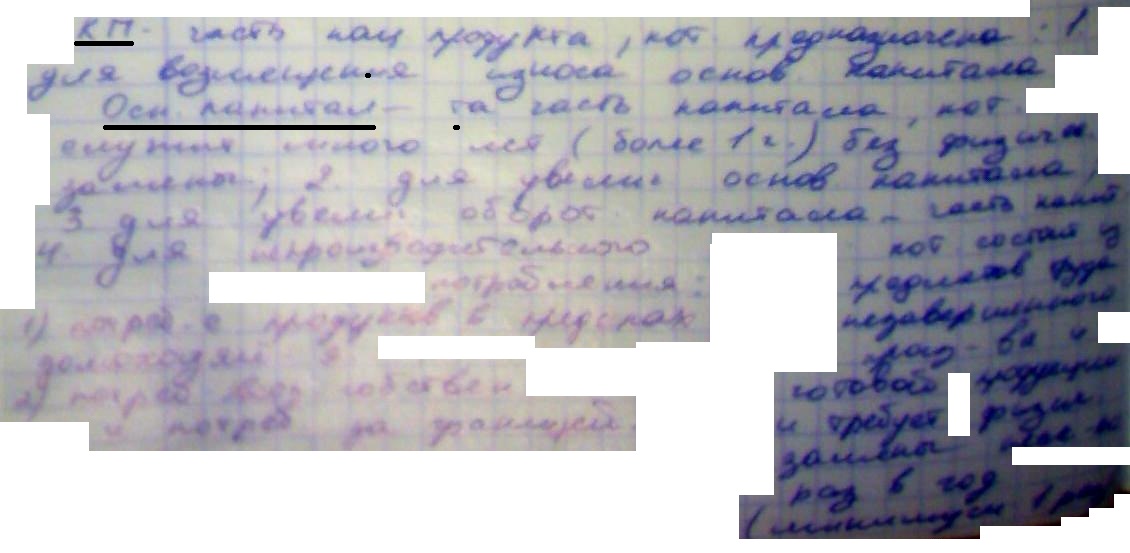 КП - часть нац продукта, кот предназначена: 1.
для возмещения износа основ. капитала
Осн. капитал - та часть капитала, кот.
служит много лет (более 1 г.) без физич.
замены; 2. для увелич основ капитала,
3 для увелич оборот. капитала - часть капит
4. для непроизводительного
потребления:
1) потреб-е продуктов в пределах
домохозяй
2) потреб
и потреб за границей.
кот состоит из
предметов труда
незавершенного
произ-ва и
готовой продукции
и требует физич.
замены
раз в год
(минимум 1 раз)